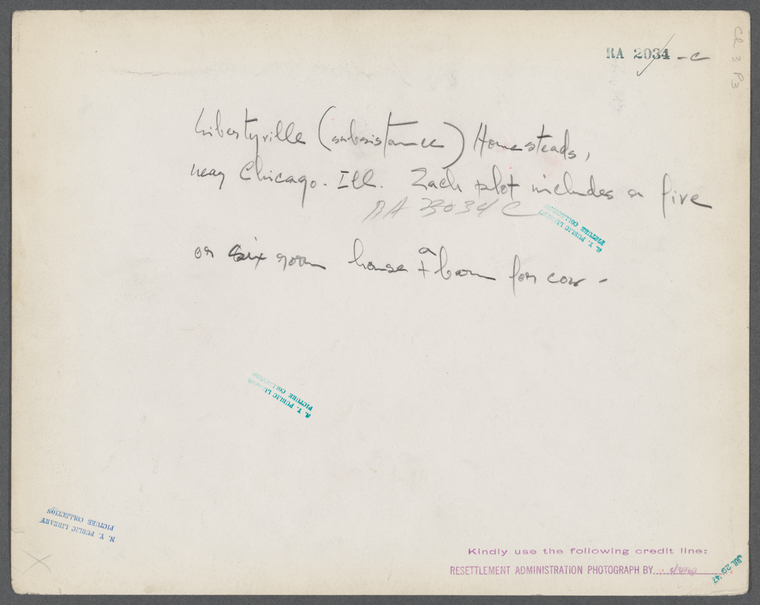 RA 2034 - C
CR 2 P3
Libertyville (subsistance) Homesteads,
near Chicago. Ill. Each plot includes a five
RA 23034 C
N. Y. PUBLIC LIBRARY
PICTURE COLLECTION
or six room house + a barn for cow -
N. Y. PUBLIC LIBRARY
PICTURE COLLECTION
N. Y. PUBLIC LIBRARY
PICTURE COLLECTION
X
Kindly use the following credit line:
RESETTLEMENT ADMINISTRATION PHOTOGRAPH BY
JUL 29 '47